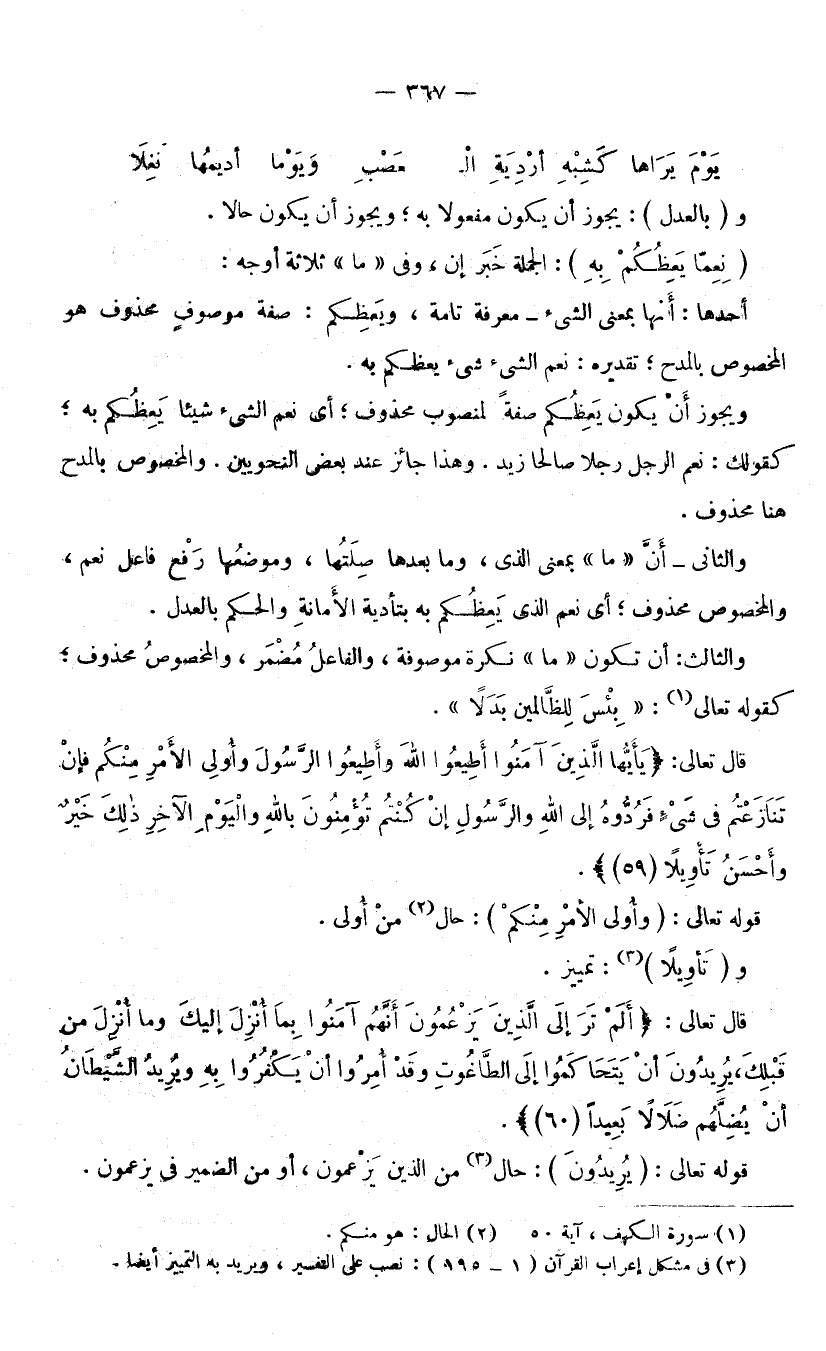 — ٣٦٧ —
يَوْمَ يَرَاها كَشِبْهِ أرْدِيَةِ الْـ عَصْبِ وَيَوْما أديمُها نَغِلَا
و ( بالعدل ) : يجوز أن يكون مفعولا به ؛ ويجوز أن يكون حالا .
( نِعِمّا يَعِظُكُمْ بِهِ ) : الجملة خَبَر إن ، وفى « ما » ثلاثة أوجه :
أحدها : أَنها بمعنى الشىء ـ معرفة تامة ، ويَعظِكم : صفة موصوفٍ محذوف هو
المخصوص بالمدح ؛ تقديره : نعم الشىء شىء يعظكم به .
ويجوز أَنْ يكون يَعِظُكم صفةً لمنصوب محذوف ؛ أى نعم الشىء شيئا يَعِظُكم به ؛
كقولك : نعم الرجل رجلا صالحا زيد . وهذا جائز عند بعض النحويين . والمخصوص بالمدح
هنا محذوف .
والثانى ـ أَنَّ « ما » بمعنى الذى ، وما بعدها صِلَتُها ، وموضعُها رَفْع فاعل نعم ،
والمخصوص محذوف ؛ أى نعم الذى يَعِظُكم به بتأدية الأَمانةِ والحكم بالعدل .
والثالث: أن تكون « ما » نكرة موصوفة ، والفاعلُ مُضْمَر ، والمخصوصُ محذوف ؛
كقوله تعالى(١) : « بِئْسَ لِلظَّالمين بَدَلًا » .
قال تعالى: ﴿يَأَيُّها الَّذِينَ آمَنُوا أَطِيعُوا اللهَ وأَطِيعُوا الرَّسُولَ وأُولِى الأَمْرِ مِنْكُم فإنْ
تَنَازَعْتُم فى شَىْءٍ فَرُدُّوهُ إلى اللهِ والرَّسُولِ إنْ كُنْتُم تُؤْمِنُونَ باللهِ والْيَوْمِ الآخِرِ ذٰلِكَ خَيْرٌ
وأَحْسَنُ تَأْوِيلًا (٥٩)﴾ .
قوله تعالى : ( وأُولى الأمْرِ مِنْكمْ ) : حال(٢) منْ أُولى .
و ( تَأْوِيلًا )(٣) : تمييز .
قال تعالى : ﴿ أَلَمْ تَرَ إلَى الَّذِينَ يَزْعُمُونَ أَنَّهُم آمَنُوا بِمَا أُنْزِلَ إليكَ وما أُنْزِلَ من
قَبْلِكَ،يُرِيدُونَ أنْ يَتَحَاكَمُوا إلَى الطَّاغُوتِ وقَدْ أُمِرُوا أنْ يَكْفُرُوا بِهِ ويُرِيدُ الشَّيْطَانُ
أنْ يُضِلَّهُم ضَلَالًا بَعِيداً (٦٠)﴾ .
قوله تعالى : ( يُرِيدُونَ ) : حال(٣) من الذين يَزْعمون ، أو من الضمير فى يزعمون .
(١) سورة الكهف ، آية ٥٠ (٢) الحال : هو منكم .
(٣) فى مشكل إعراب القرآن ( ١ ـ ١٩٥ ) : نصب على التفسير ، ويريد به التمييز أيضا .